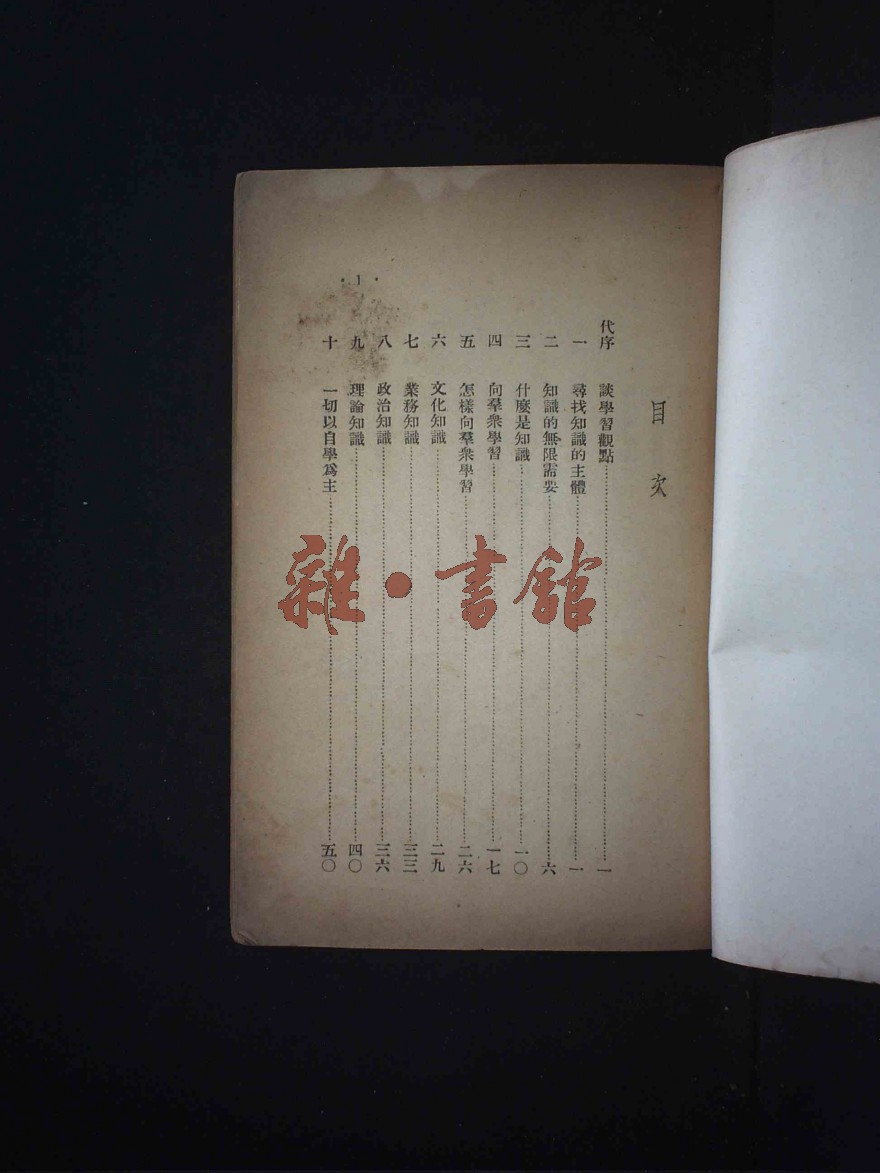 目次
代序 談學習觀點 一
一 尋找知識的主體 一
二 知識的無限需要 六
三 什麼是知識 一〇
四 向羣衆學習 一七
五 怎樣向羣衆學習 二六
六 文化知識 二九
七 業務知識 三三
八 政治知識 三六
九 理論知識 四〇
十 一切以自學爲主 五〇
·1·
雜·書館